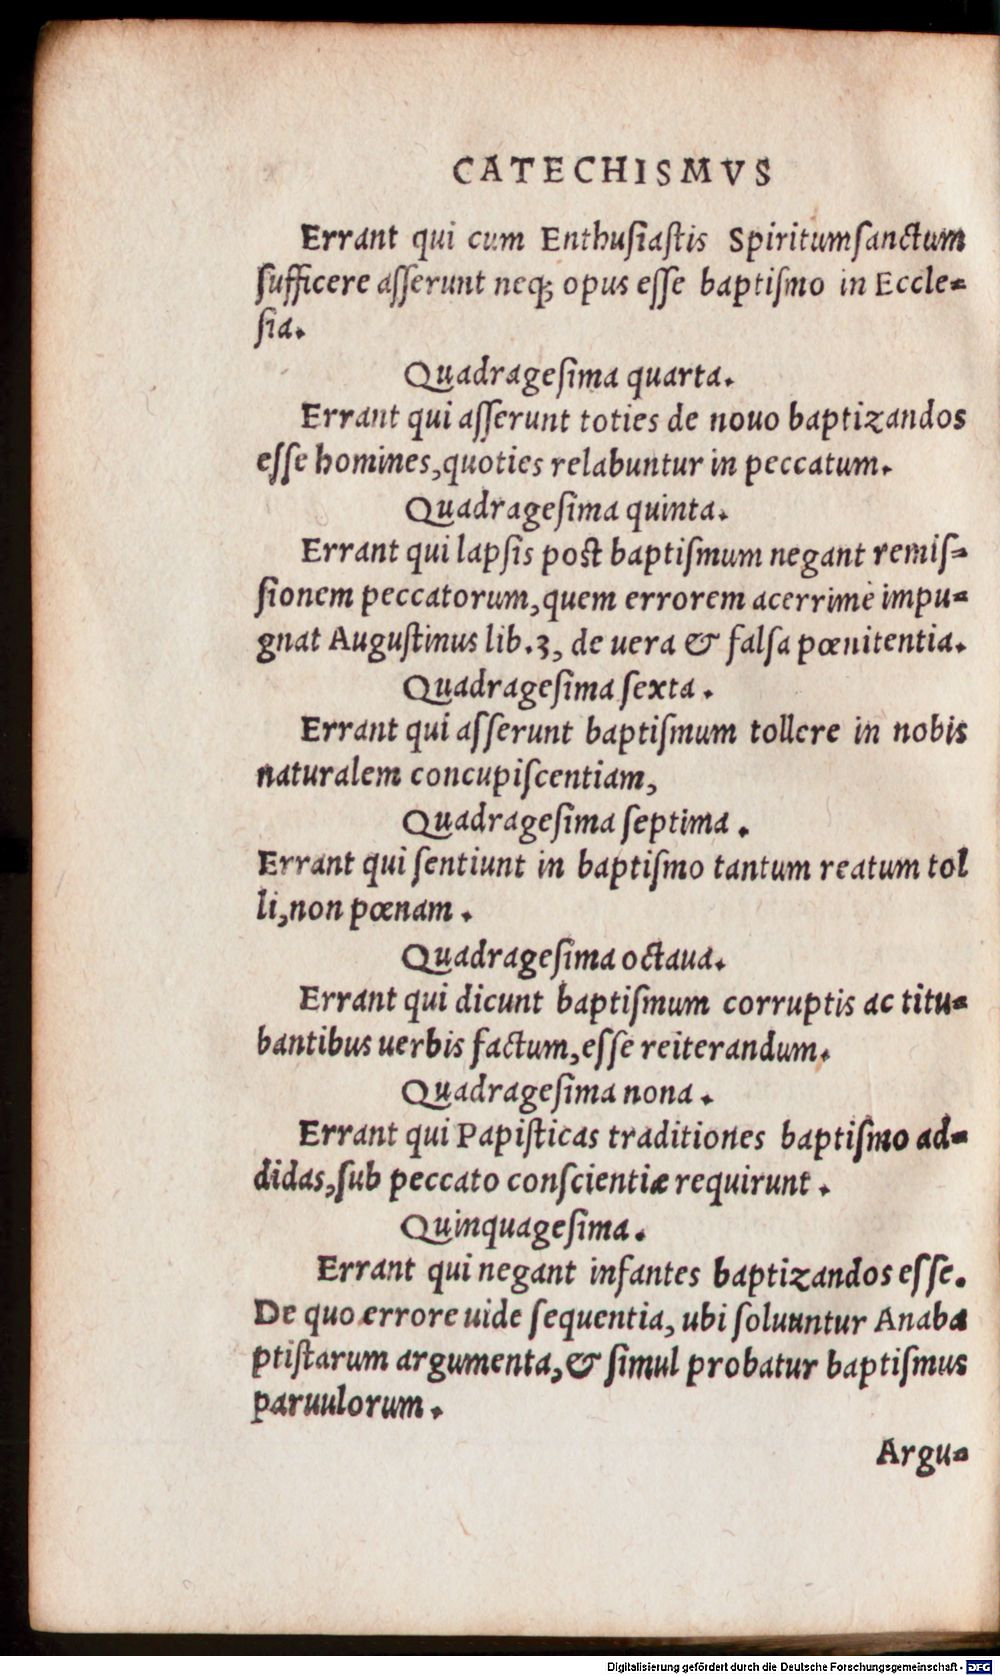 CATECHISMVS
Errant qui cum Enthuſiaſtis Spiritumſanctum
ſufficere aſſerunt neq; opus eſſe baptiſmo in Eccle-
ſia.
Quadrageſima quarta.
Errant qui aſſerunt toties de nouo baptizandos
eſſe homines,quoties relabuntur in peccatum.
Quadrageſima quinta.
Errant qui lapſis poſt baptiſmum negant remiſ-
ſionem peccatorum,quem errorem acerrimè impu-
gnat Auguſtinus lib.3, de uera & falſa pœnitentia.
Quadrageſima ſexta.
Errant qui aſſerunt baptiſmum tollere in nobis
naturalem concupiſcentiam,
Quadrageſima ſeptima.
Errant qui ſentiunt in baptiſmo tantum reatum tol
li,non pœnam.
Quadrageſima octaua.
Errant qui dicunt baptiſmum corruptis ac titu-
bantibus uerbis factum,eſſe reiterandum.
Quadrageſima nona.
Errant qui Papiſticas traditiones baptiſmo ad-
didas,ſub peccato conſcientiæ requirunt.
Quinquageſima.
Errant qui negant infantes baptizandos eſſe.
De quo errore uide ſequentia, ubi ſoluuntur Anaba
ptiſtarum argumenta,& ſimul probatur baptiſmus
paruulorum.
Argu-
Digitalisierung gefördert durch die Deutsche Forschungsgemeinschaft - DFG